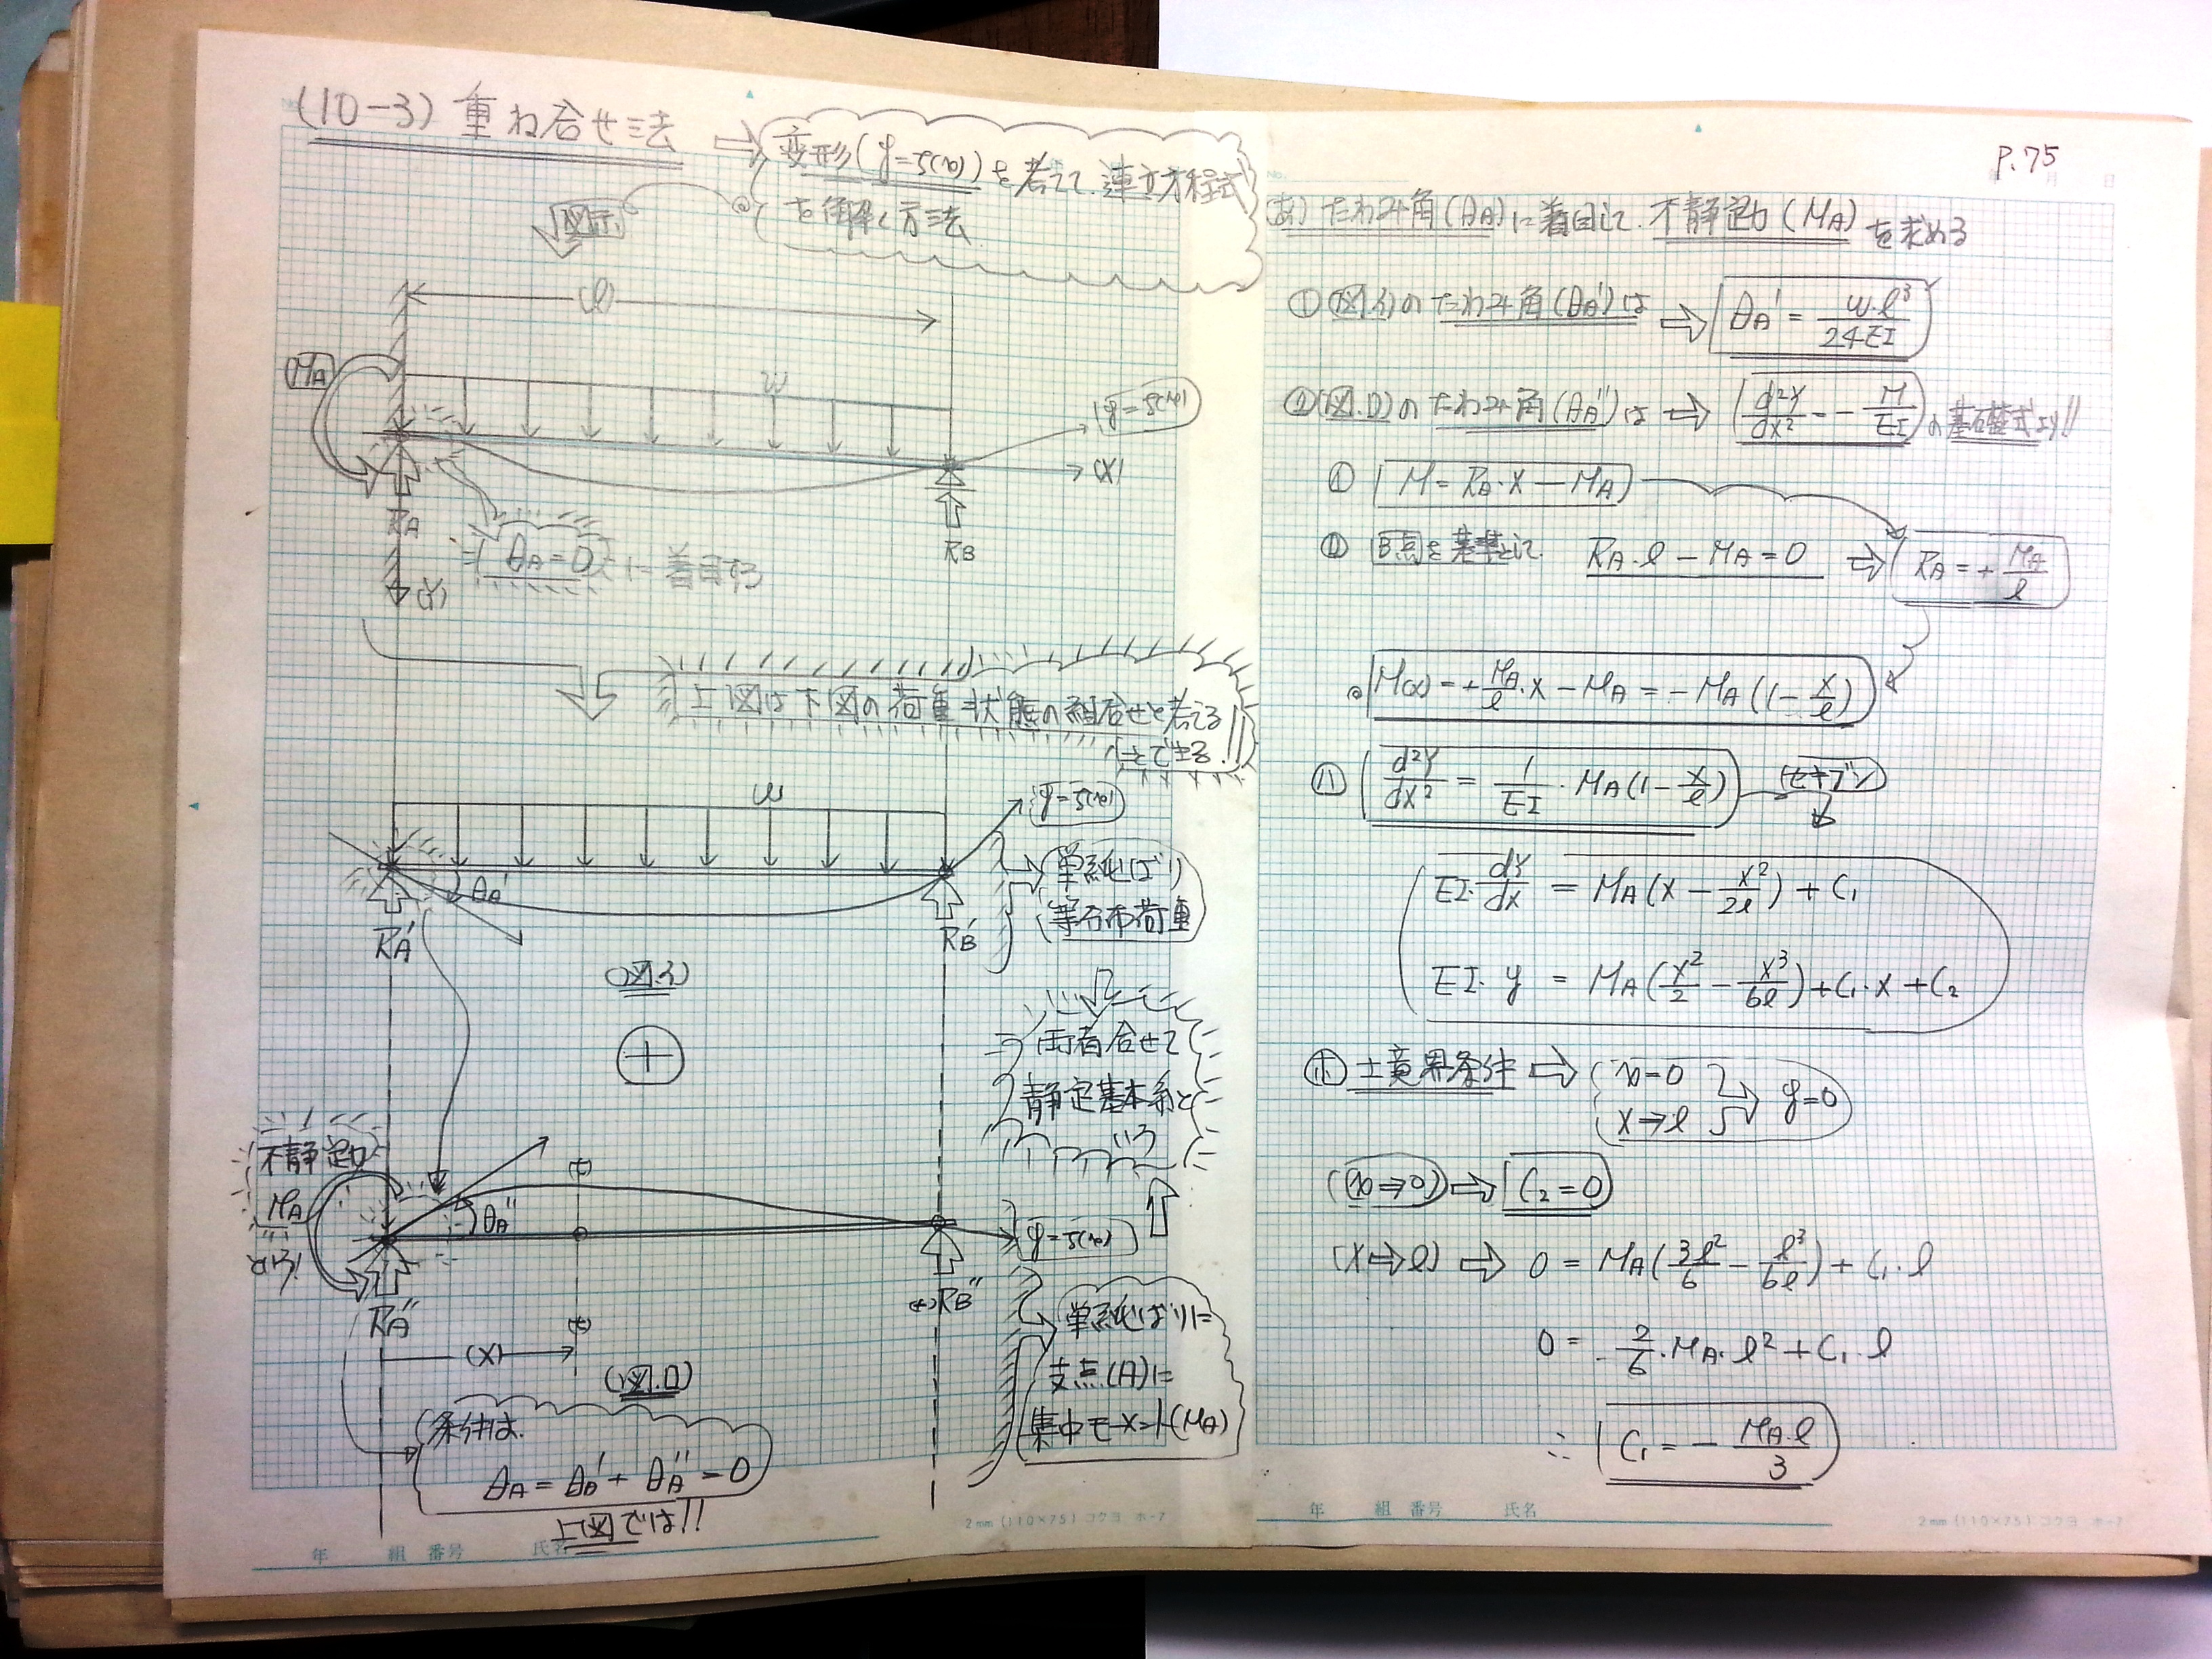 (10-3) 重ね合せ法 ⇒ 変形(y=f(x))を考えて、連立方程式
を解く方法
図示
(l)
MA
w
y=f(x)
(X)
RA
RB
θA=0 に着目する
(Y)
上図は下図の荷重状態の組合せと考える
ことできる!!
w
y=f(x)
θA'
単純ばり
等分布荷重
RA'
RB'
(図.イ)
+
両者合せて
静定基本系と
いう
不静定力
MA
θA''
y=f(x)
RA''
RB''
(X)
(図.ロ)
単純ばりに
支点(A)に
集中モーメント(MA)
条件は、
θA = θA' + θA'' = 0
上図では!!
2mm (110×75) コクヨ ホ-7
年 組 番号 氏名
P.75
No. 年 月 日
(あ) たわみ角(θA)に着目して、不静定力(MA)を求める
① (図.イ)のたわみ角(θA')は ⇒ θA' = w・l³/24EI
② (図.ロ)のたわみ角(θA'')は ⇒ d²y/dx² = -M/EI の基礎式より!!
イ M = RA・X - MA
ロ B点を基準として、 RA・l - MA = 0 ⇒ RA = + MA/l
M(x) = + MA/l・X - MA = - MA (1 - X/l)
ハ d²y/dx² = 1/EI・MA(1 - X/l) (セキブン)
EI・dy/dx = MA(X - X²/2l) + C₁
EI・y = MA(X²/2 - X³/6l) + C₁・X + C₂
ホ 境界条件 ⇒ x=0
X→l
y=0
(x⇒0) ⇒ C₂=0
(X⇒l) ⇒ 0 = MA(3l²/6 - l³/6l) + C₁・l
0 = 2/6・MA・l² + C₁・l
∴ C₁ = - MA・l/3
年 組 番号 氏名
2mm (110×75) コクヨ ホ-7